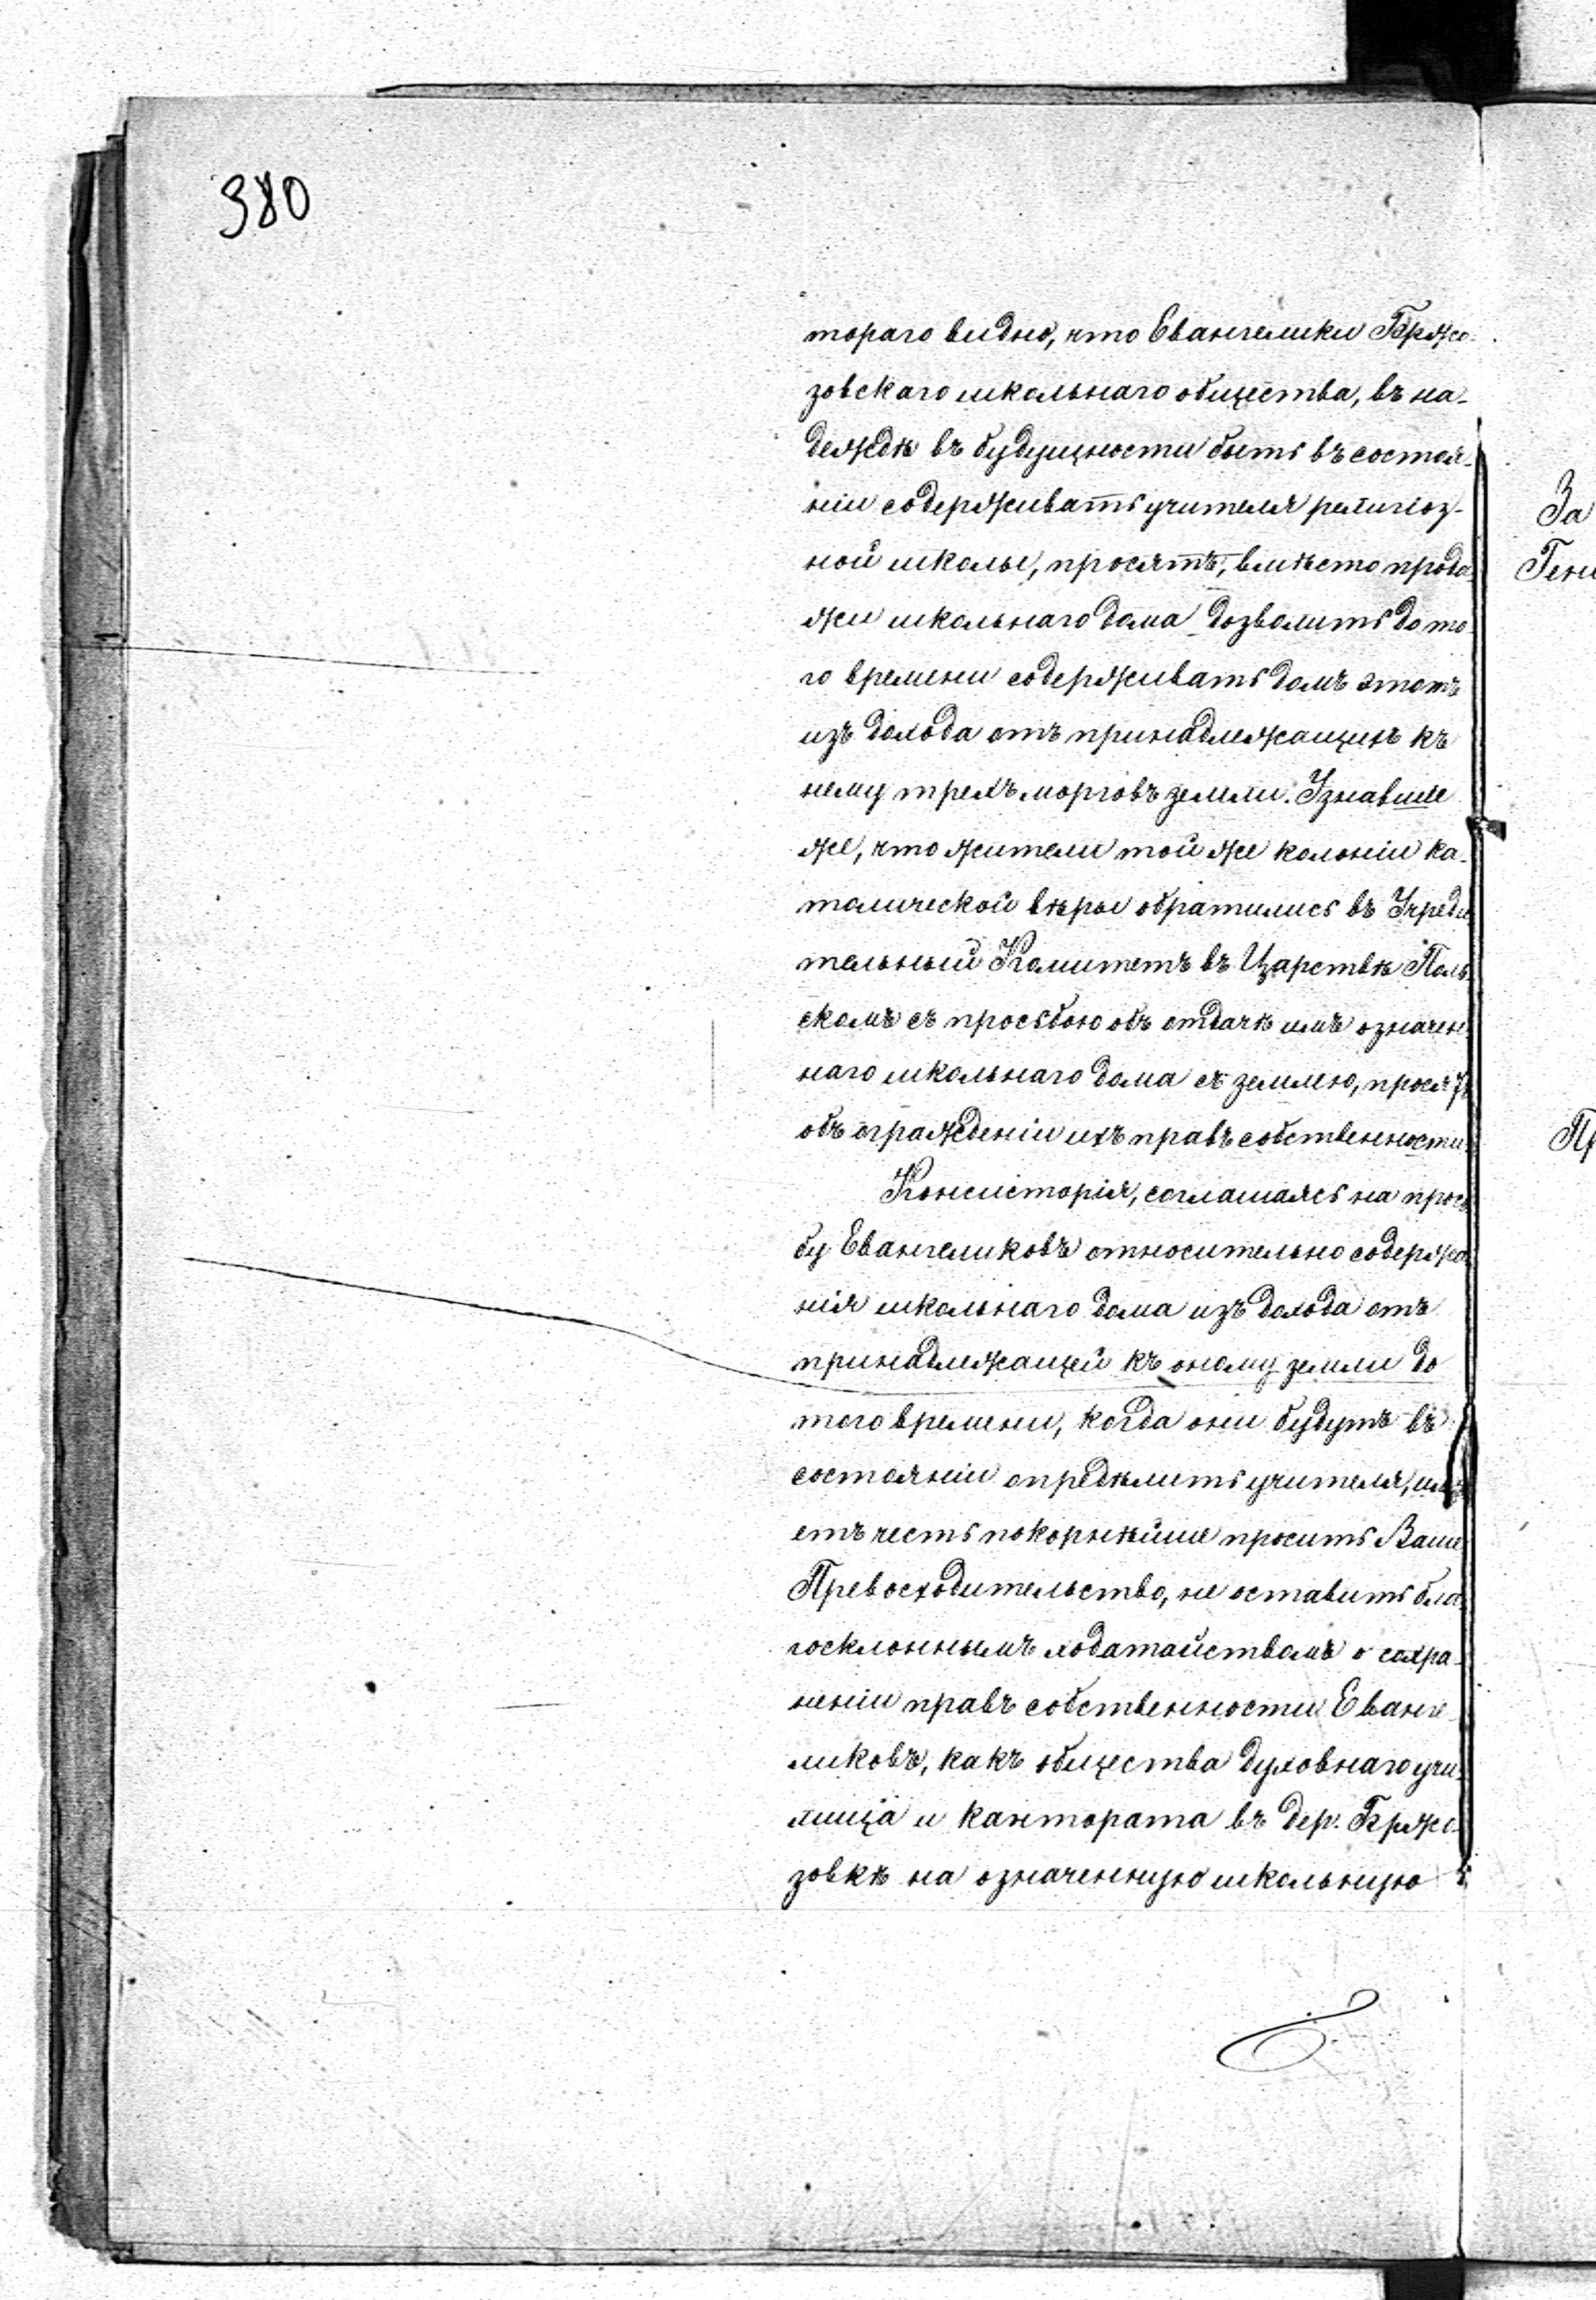 380
тораго видно, что Евангелики Бржо-
зовскаго школьнаго общества, въ на-
деждѣ въ будущности быть въ состоя-
ніи содерживать учителя религіоз-
ной школы, просятъ, вмѣсто прода
жи школьнаго дома дозволить до то-
го времени содерживать домъ этотъ
изъ дохода отъ принадлежащихъ къ
нему трехъ морговъ земли. Узнавше
же, что жители той же колоніи ка-
толической вѣры обратились въ Учреди
тельный Комитетъ въ Царствѣ Поль
скомъ съ просьбою объ отдачѣ имъ означен
наго школьнаго дома съ землею, просятъ
объ огражденіи ихъ правъ собственности.
Консисторія, соглашаясь на прось
бу Евангеликовъ относительно содержа
нія школьнаго дома изъ дохода отъ
принадлежащей къ оному земли до
того времени, когда они будутъ въ
состояніи опредѣлить учителя, имѣ
етъ честь покорнѣйше просить Ваше
Превосходительство, не оставить бла
госклоннымъ ходатайствомъ о сохра-
неніи правъ собственности Еванге-
ликовъ, какъ общества духовнаго учи
лища и кантората въ дер. Бржо-
зовкѣ на означенную школьную
За
Гене
Пр